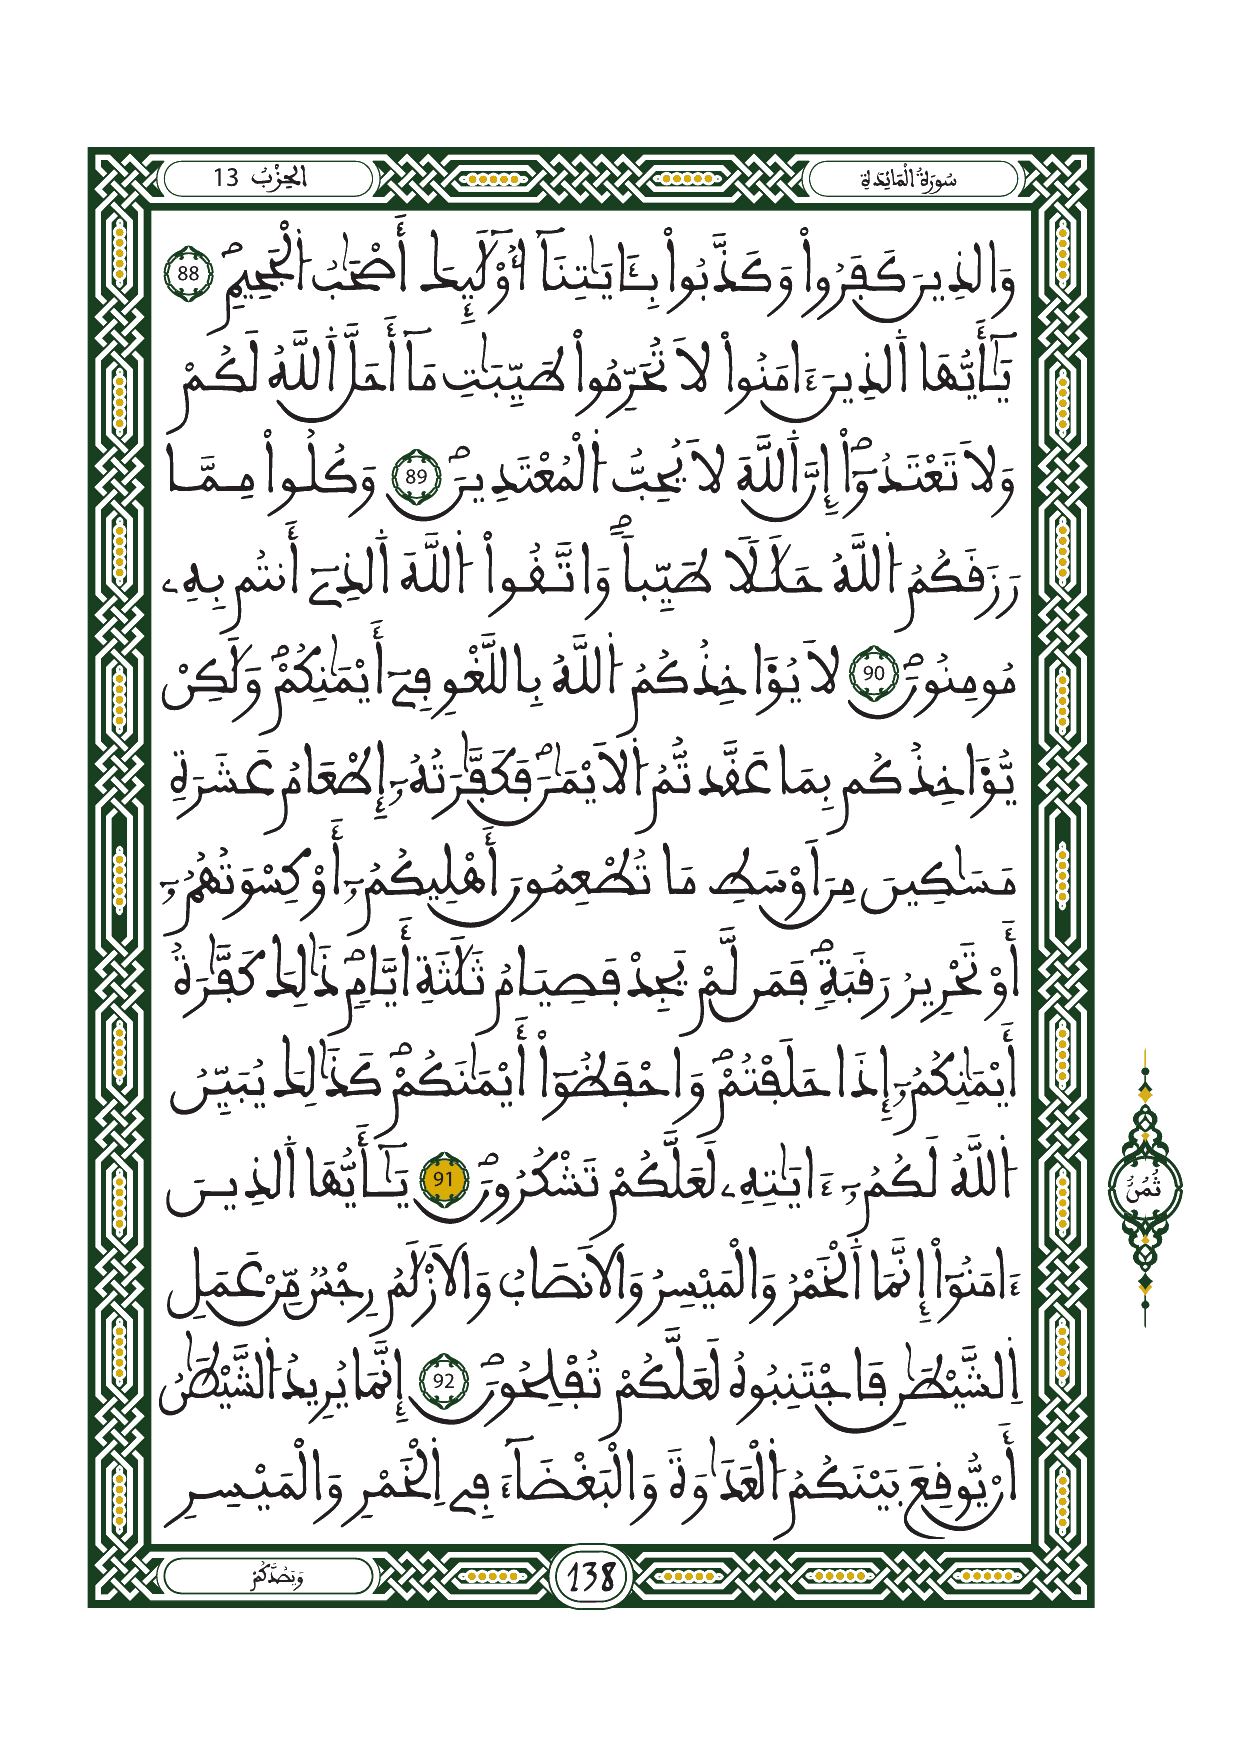 سُورَةُ الْمَائِدَةِ
الحِزْبُ 13
وَالذِينَ كَفَرُواْ وَكَذَّبُواْ بِـَٔايَٰتِنَآ أُوْلَٰٓئِكَ أَصْحَٰبُ اُ۬لْجَحِيمِۖ 88
يَٰٓأَيُّهَا اَ۬لذِينَ ءَامَنُواْ لَا تُحَرِّمُواْ طَيِّبَٰتِ مَآ أَحَلَّ اَ۬للَّهُ لَكُمْ
وَلَا تَعْتَدُوٓاْۖ إِنَّ اَ۬للَّهَ لَا يُحِبُّ اُ۬لْمُعْتَدِينَۖ 89 وَكُلُواْ مِمَّا
رَزَقَكُمُ اُ۬للَّهُ حَلَٰلاٗ طَيِّباٗۖ وَاتَّقُواْ اُ۬للَّهَ اَ۬لذِےٓ أَنتُم بِهِۦ
مُومِنُونَۖ 90 لَا يُؤَاخِذُكُمُ اُ۬للَّهُ بِاللَّغْوِ فِےٓ أَيْمَٰنِكُمْۖ وَلَٰكِنْ
يُّؤَاخِذُكُم بِمَا عَقَّدتُّمُ اُ۬لَايْمَٰنَۖ فَكَفَّٰرَتُهُۥٓ إِطْعَامُ عَشَرَةِ
مَسَٰكِينَ مِنَ اَوْسَطِ مَا تُطْعِمُونَ أَهْلِيكُمُۥٓ أَوْ كِسْوَتُهُمُۥٓ
أَوْ تَحْرِيرُ رَقَبَةٖۖ فَمَن لَّمْ يَجِدْ فَصِيَامُ ثَلَٰثَةِ أَيَّامٖۖ ذَٰلِكَ كَفَّٰرَةُ
أَيْمَٰنِكُمُۥٓ إِذَا حَلَفْتُمْۖ وَاحْفَظُوٓاْ أَيْمَٰنَكُمْۖ كَذَٰلِكَ يُبَيِّنُ
اُ۬للَّهُ لَكُمُۥٓ ءَايَٰتِهِۦ لَعَلَّكُمْ تَشْكُرُونَۖ 91 يَٰٓأَيُّهَا اَ۬لذِينَ
ثُمُنُ
ءَامَنُوٓاْ إِنَّمَا اَ۬لْخَمْرُ وَالْمَيْسِرُ وَالَانصَابُ وَالَازْلَٰمُ رِجْسٞ مِّنْ عَمَلِ
اِ۬لشَّيْطَٰنِ فَاجْتَنِبُوهُ لَعَلَّكُمْ تُفْلِحُونَۖ 92 إِنَّمَا يُرِيدُ اُ۬لشَّيْطَٰنُ
أَنْ يُّوقِعَ بَيْنَكُمُ اُ۬لْعَدَٰوَةَ وَالْبَغْضَآءَ فِے اِ۬لْخَمْرِ وَالْمَيْسِرِ
138
وَيَصُدَّكُمْ